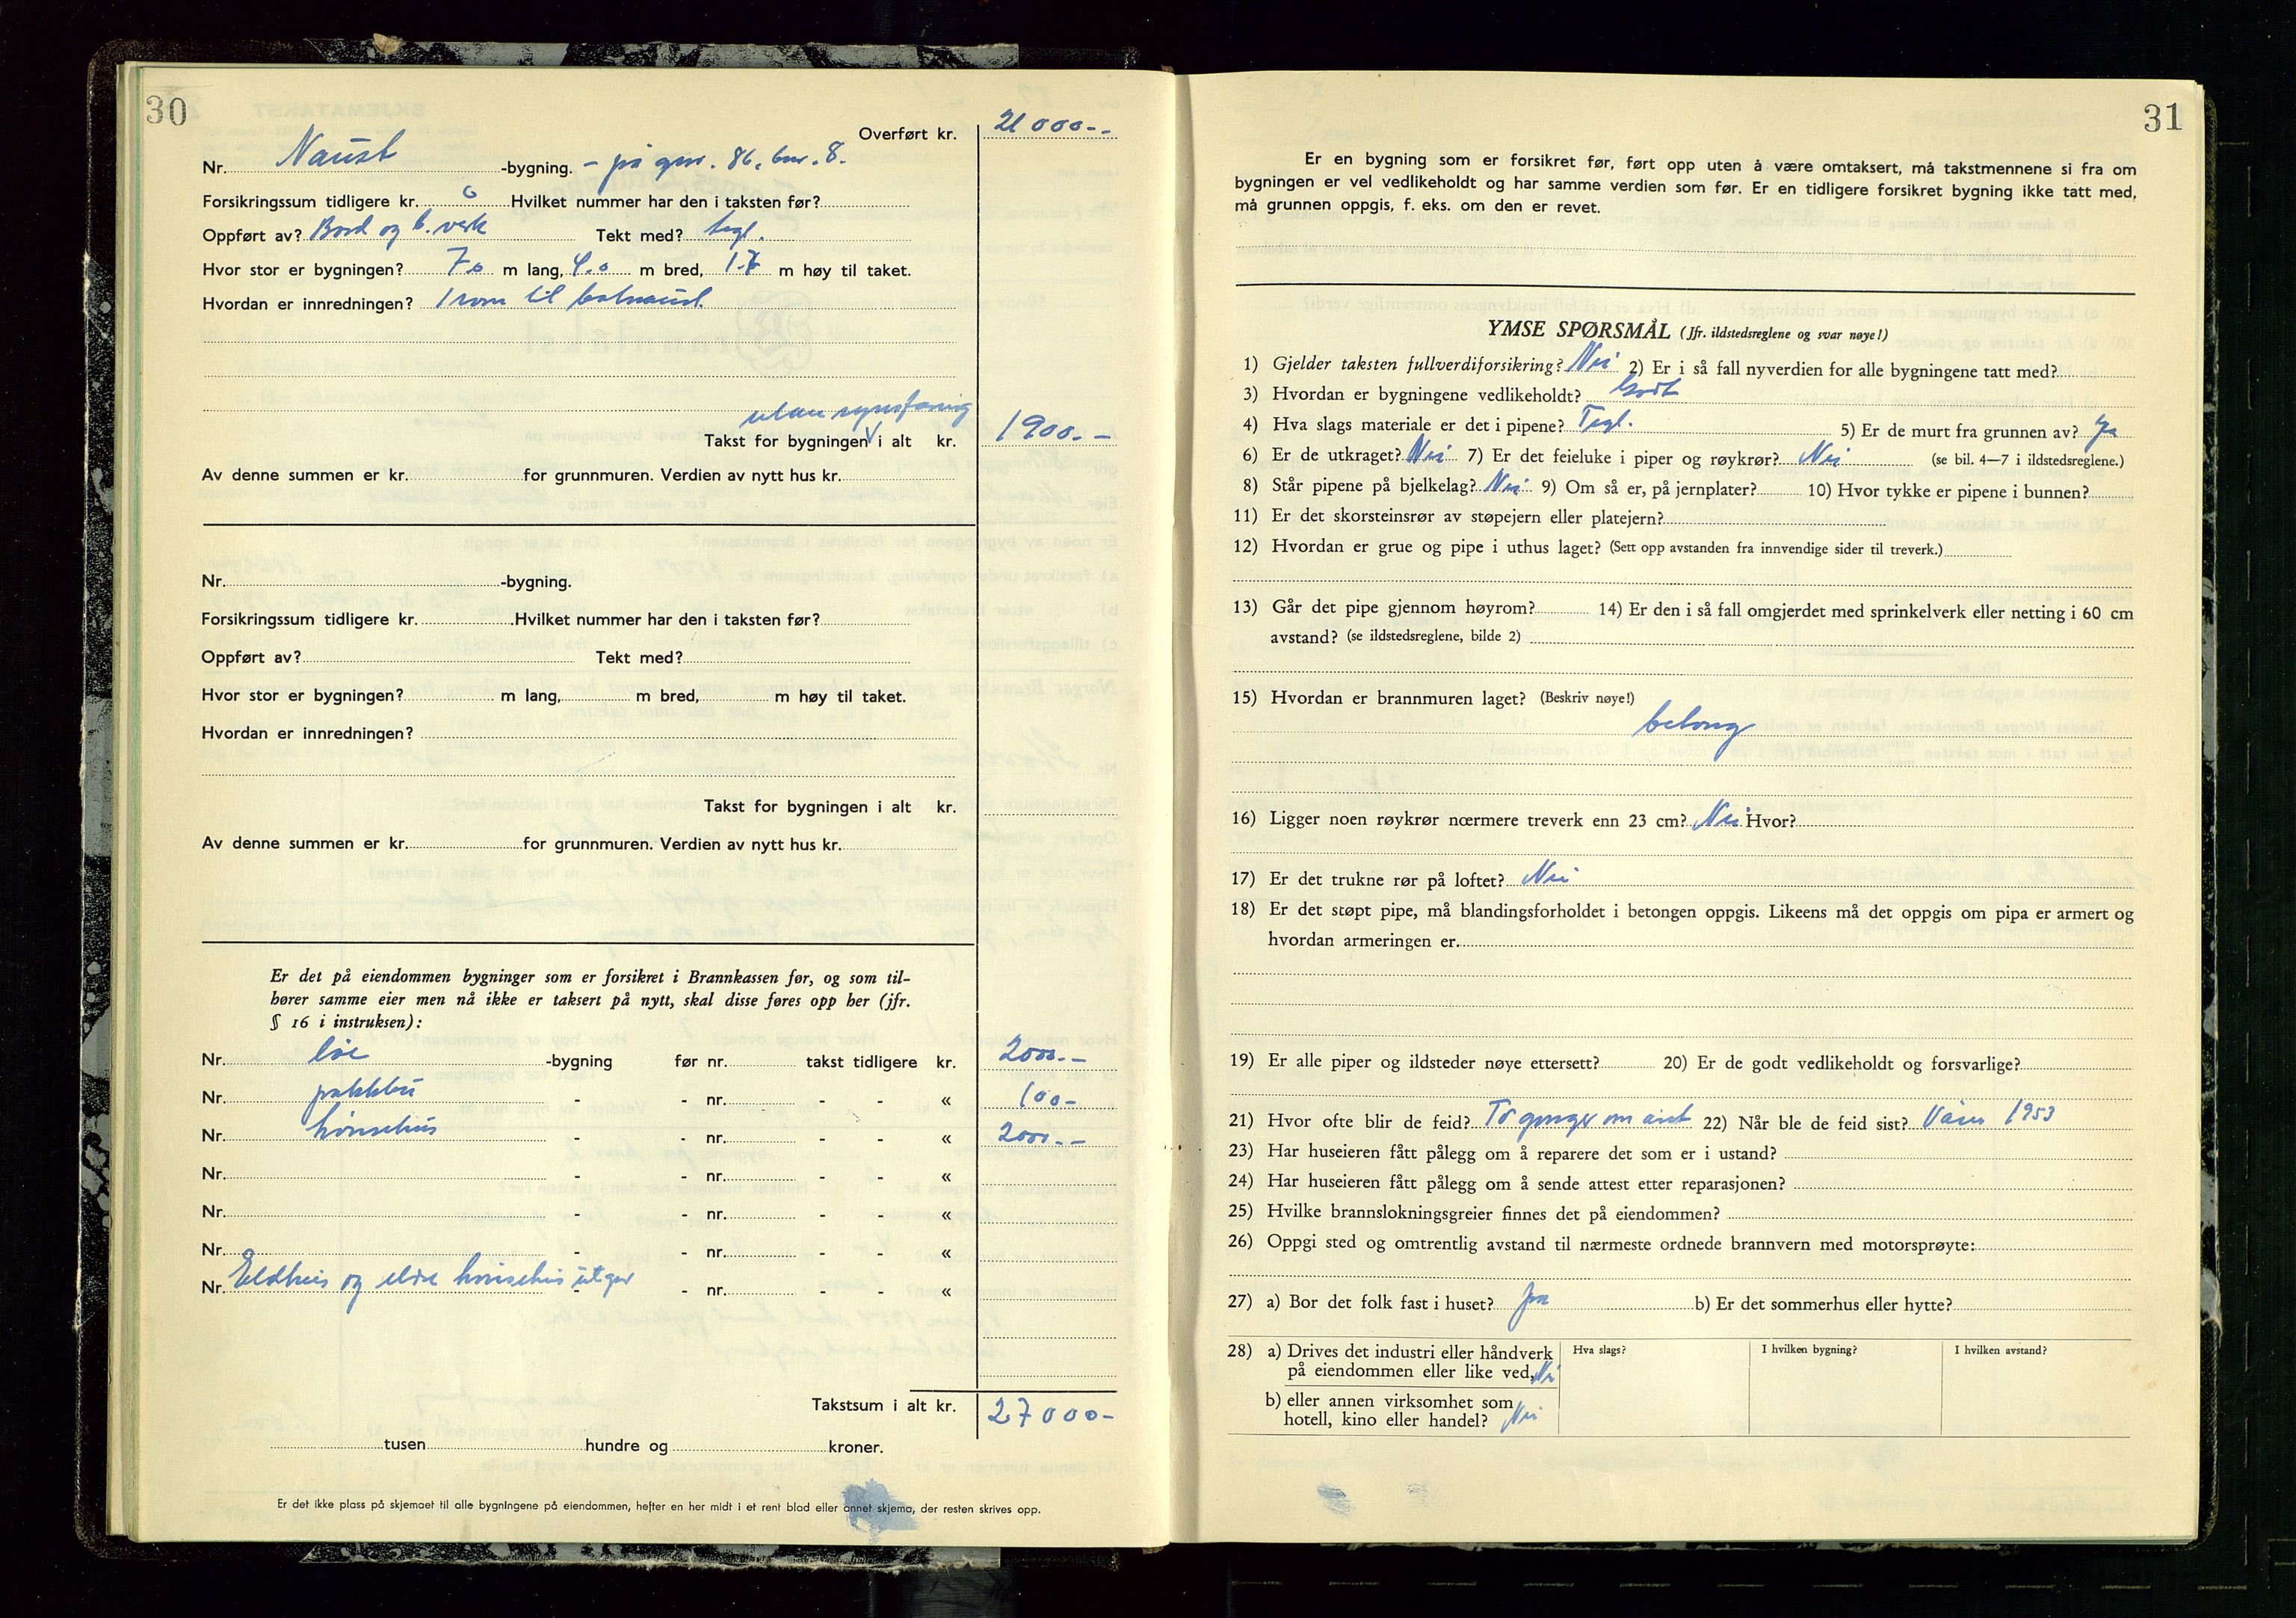 30
Overført kr. 21 000--
Nr. Naust -bygning. - på gnr. 86, bnr. 8.
Forsikringssum tidligere kr. 0 Hvilket nummer har den i taksten før?
Oppført av? Bord og b.verk Tekt med? tegl.
Hvor stor er bygningen? 7.0 m lang, 4.0 m bred, 1.7 m høy til taket.
Hvordan er innredningen? 1 rom til båtnaust.
utan synsfaring
Takst for bygningen V i alt kr. 1900.--
Av denne summen er kr. for grunnmuren. Verdien av nytt hus kr.
Nr. -bygning.
Forsikringssum tidligere kr. Hvilket nummer har den i taksten før?
Oppført av? Tekt med?
Hvor stor er bygningen? m lang, m bred, m høy til taket.
Hvordan er innredningen?
Takst for bygningen i alt kr.
Av denne summen er kr. for grunnmuren. Verdien av nytt hus kr.
Er det på eiendommen bygninger som er forsikret i Brannkassen før, og som til-
hører samme eier men nå ikke er taksert på nytt, skal disse føres opp her (jfr.
§ 16 i instruksen):
Nr. löe -bygning før nr. takst tidligere kr. 2000.--
Nr. pakkbu - - nr. - - « 100-
Nr. hönsehus - - nr. - - « 2000.--
Nr. - - nr. - - «
Nr. - - nr. - - «
Nr. - - nr. - - «
Nr. Eldhus og eldre hönsehus utgår - - nr. - - «
Takstsum i alt kr. 27000-
tusen hundre og kroner.
Er det ikke plass på skjemaet til alle bygningene på eiendommen, hefter en her midt i et rent blad eller annet skjema, der resten skrives opp.
31
Er en bygning som er forsikret før, ført opp uten å være omtaksert, må takstmennene si fra om
bygningen er vel vedlikeholdt og har samme verdien som før. Er en tidligere forsikret bygning ikke tatt med,
må grunnen oppgis, f. eks. om den er revet.
YMSE SPØRSMÅL (Jfr. ildstedsreglene og svar nøye!)
1) Gjelder taksten fullverdiforsikring? Nei 2) Er i så fall nyverdien for alle bygningene tatt med?
3) Hvordan er bygningene vedlikeholdt? Godt
4) Hva slags materiale er det i pipene? Tegl. 5) Er de murt fra grunnen av? Ja
6) Er de utkraget? Nei 7) Er det feieluke i piper og røykrør? Nei (se bil. 4—7 i ildstedsreglene.)
8) Står pipene på bjelkelag? Nei 9) Om så er, på jernplater? 10) Hvor tykke er pipene i bunnen?
11) Er det skorsteinsrør av støpejern eller platejern?
12) Hvordan er grue og pipe i uthus laget? (Sett opp avstanden fra innvendige sider til treverk.)
13) Går det pipe gjennom høyrom? 14) Er den i så fall omgjerdet med sprinkelverk eller netting i 60 cm
avstand? (se ildstedsreglene, bilde 2)
15) Hvordan er brannmuren laget? (Beskriv nøye!)
betong
16) Ligger noen røykrør nærmere treverk enn 23 cm? Nei Hvor?
17) Er det trukne rør på loftet? Nei
18) Er det støpt pipe, må blandingsforholdet i betongen oppgis. Likeens må det oppgis om pipa er armert og
hvordan armeringen er.
19) Er alle piper og ildsteder nøye ettersett? 20) Er de godt vedlikeholdt og forsvarlige?
21) Hvor ofte blir de feid? To ganger om året 22) Når ble de feid sist? Våren 1953
23) Har huseieren fått pålegg om å reparere det som er i ustand?
24) Har huseieren fått pålegg om å sende attest etter reparasjonen?
25) Hvilke brannslokningsgreier finnes det på eiendommen?
26) Oppgi sted og omtrentlig avstand til nærmeste ordnede brannvern med motorsprøyte:
27) a) Bor det folk fast i huset? Ja b) Er det sommerhus eller hytte?
28) a) Drives det industri eller håndverk Hva slags? I hvilken bygning? I hvilken avstand?
på eiendommen eller like ved, Nei
b) eller annen virksomhet som
hotell, kino eller handel? Nei